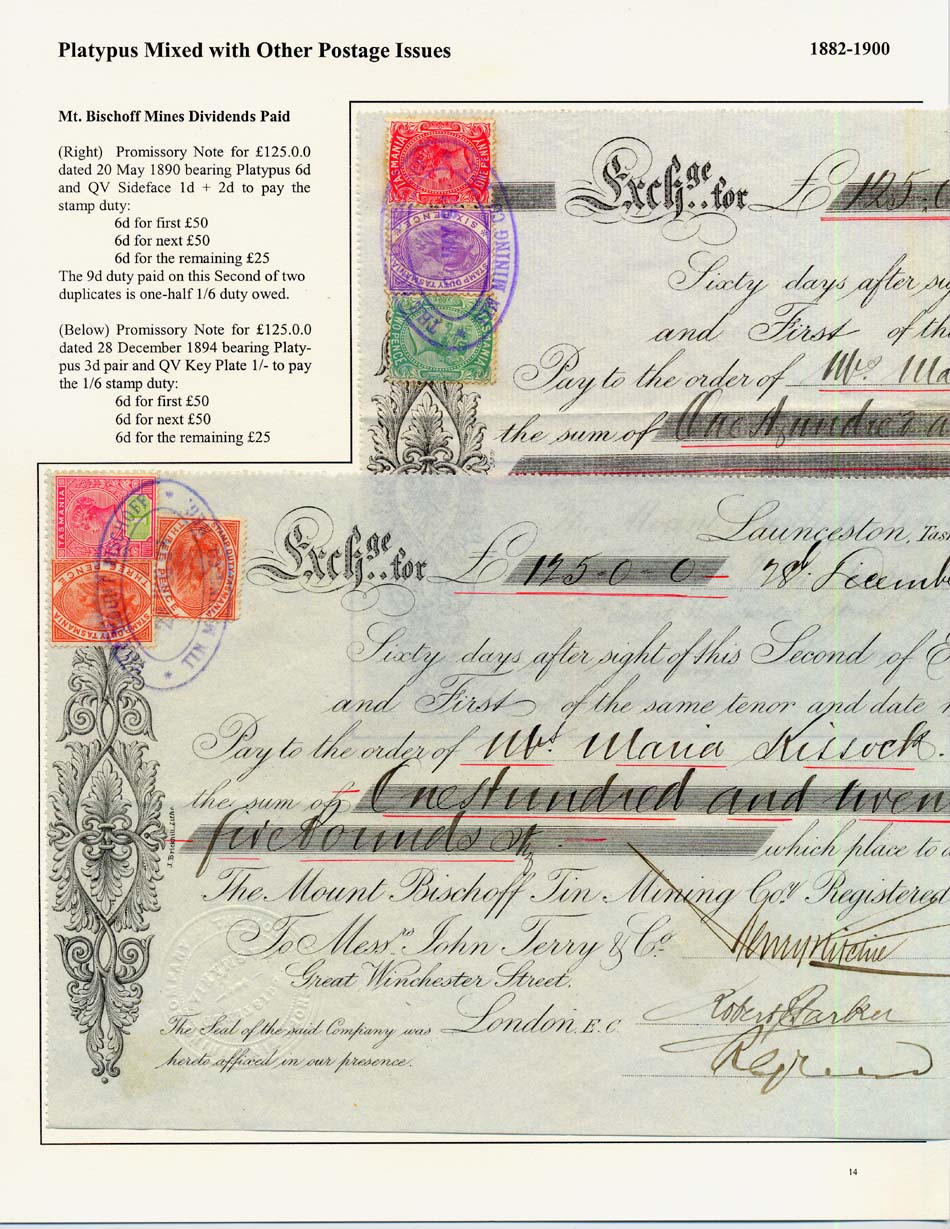 Platypus Mixed with Other Postage Issues
1882-1900
Mt. Bischoff Mines Dividends Paid
(Right) Promissory Note for £125.0.0
dated 20 May 1890 bearing Platypus 6d
and QV Sideface 1d + 2d to pay the
stamp duty:
6d for first £50
6d for next £50
6d for the remaining £25
The 9d duty paid on this Second of two
duplicates is one-half 1/6 duty owed.
(Below) Promissory Note for £125.0.0
dated 28 December 1894 bearing Platy-
pus 3d pair and QV Key Plate 1/- to pay
the 1/6 stamp duty:
6d for first £50
6d for next £50
6d for the remaining £25
TASMANIA
SIXPENCE
STAMP DUTY TASMANIA
TASMANIA
TIN MINING
Exchge.. for £ 125
Sixty days after
and First of the
Pay to the order of Mrs. Ma
the sum of One Hundred
TASMANIA
THREE PENCE
STAMP DUTY TASMANIA
MOUNT BISCHOFF
TIN
Launceston, Tas
Exchge.. for £ 125-0-0 28th Decemb
Sixty days after sight of this Second of E
and First of the same tenor and date
Pay to the order of Mrs. Maria Kissock.
the sum of One Hundred and twen
five Pounds Stg which place to
J. Brickhill, Lith.
The Mount Bischoff Tin Mining Coy. Registered
To Messrs. John Terry & Co.
Henry Ritchie
Great Winchester Street.
London, E.C.
Robert J Parker
The Seal of the said Company was
hereto affixed in our presence.
14